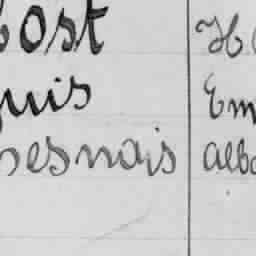 ost H
uis Em
esnais alb